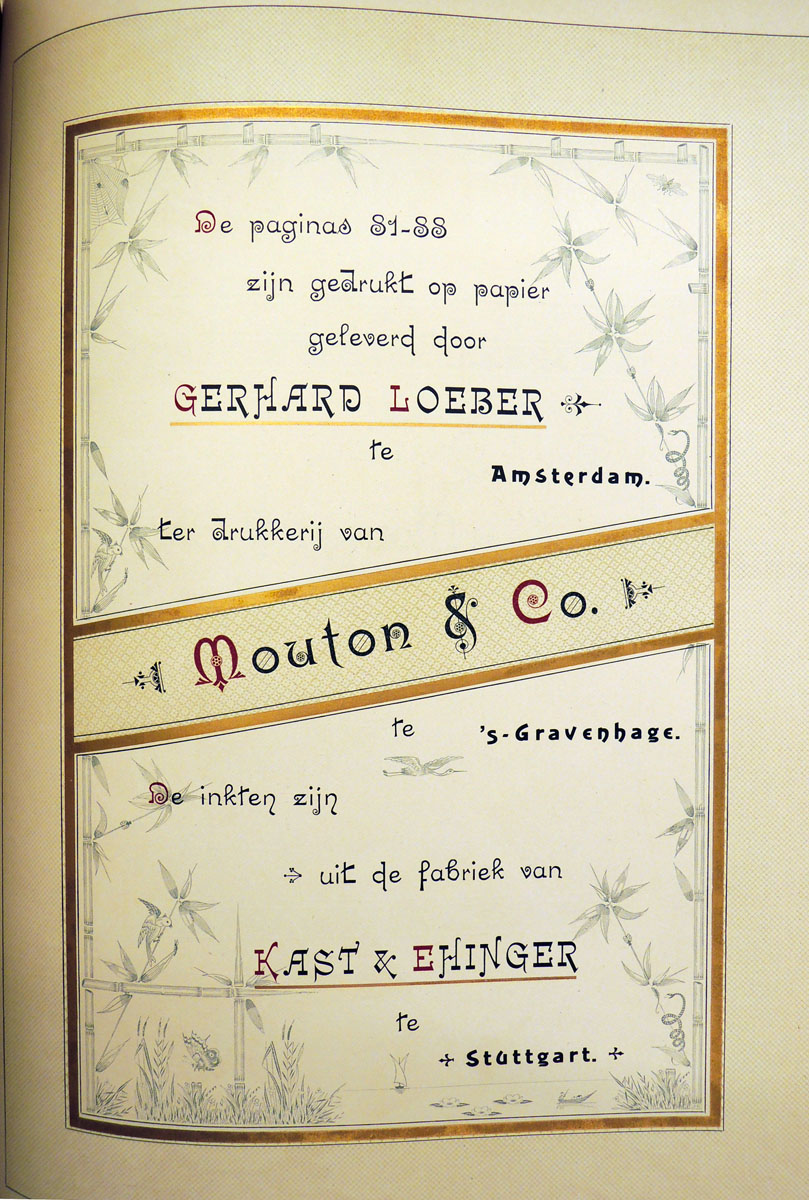 De paginas 81-88
zijn gedrukt op papier
geleverd door
GERHARD LOEBER
te
Amsterdam.
ter drukkerij van
Mouton & Co.
te 's-Gravenhage.
De inkten zijn
uit de fabriek van
KAST & EHINGER
te
Stuttgart.